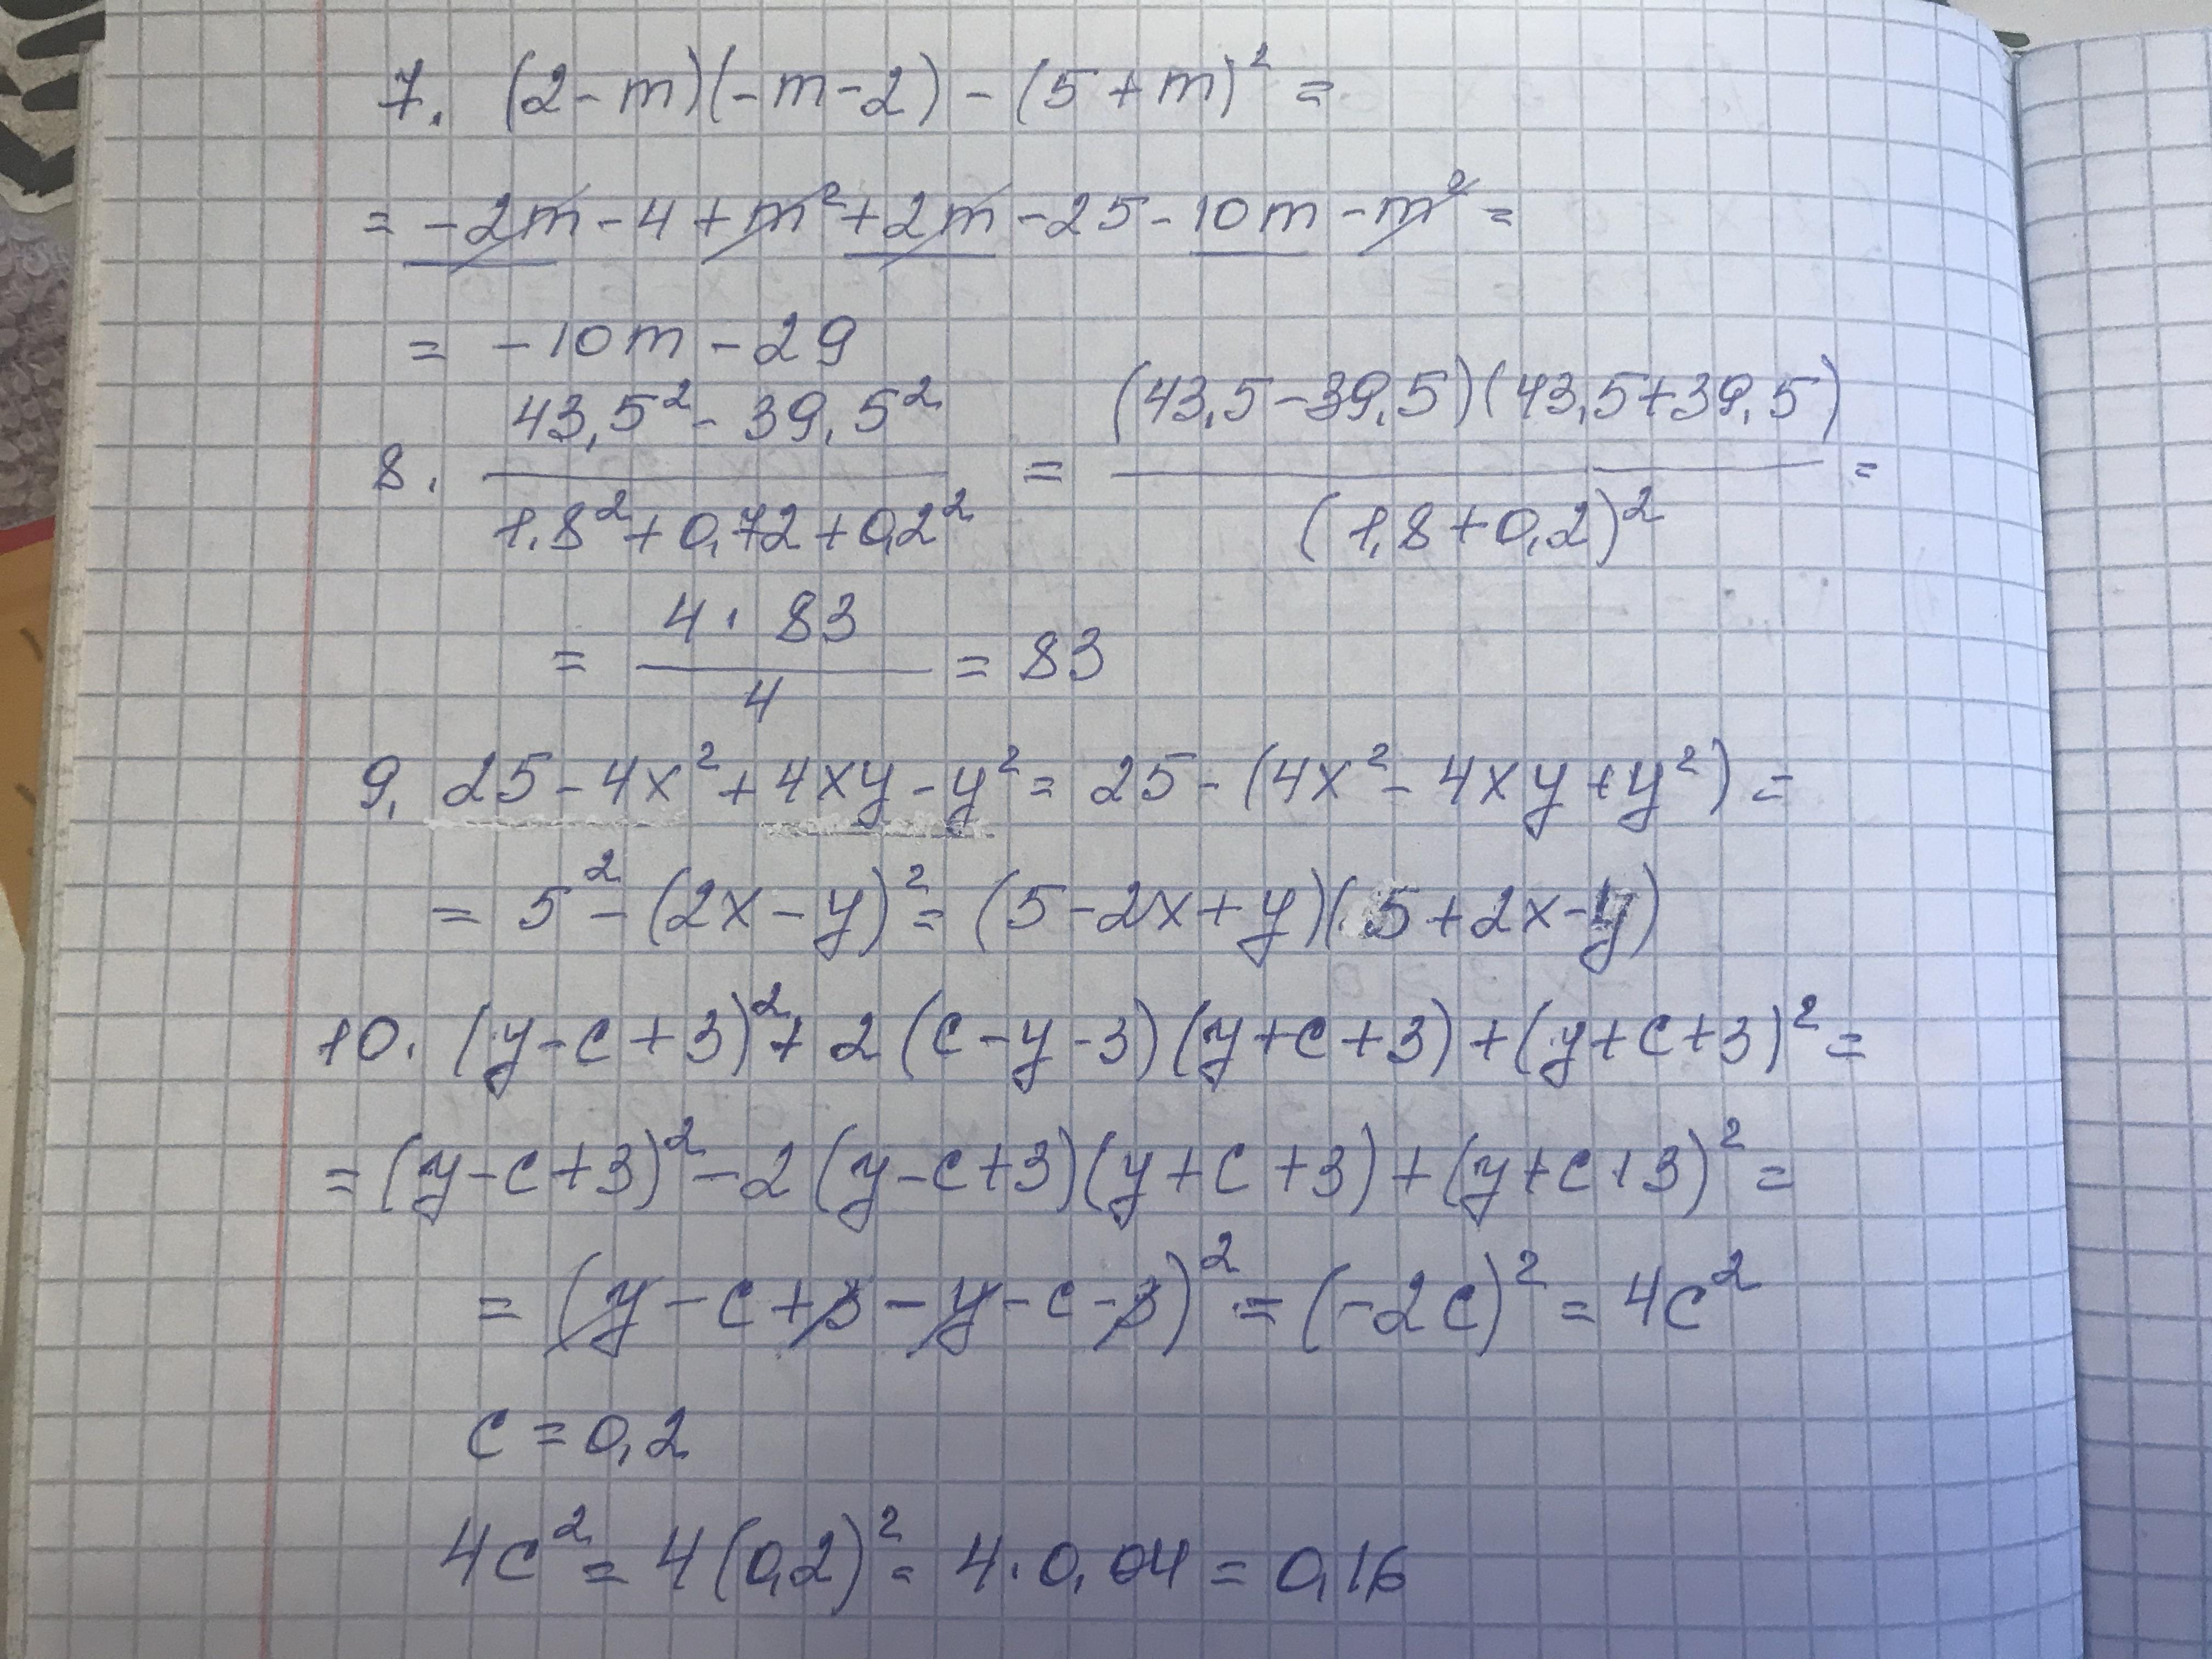 7. (2-m)(-m-2)-(5+m)²=
= -2m-4+m²+2m-25-10m-m²=
= -10m-29
8. (43,5²-39,5²)/(1,8²+0,72+0,2²) = ((43,5-39,5)(43,5+39,5))/((1,8+0,2)²) =
= (4·83)/4 = 83
9. 25-4x²+4xy-y²= 25-(4x²-4xy+y²)=
= 5²-(2x-y)²= (5-2x+y)(5+2x-y)
10. (y-c+3)²+2(c-y-3)(y+c+3)+(y+c+3)²=
= (y-c+3)²-2(y-c+3)(y+c+3)+(y+c+3)²=
= (y-c+3-y-c-3)²=(-2c)²=4c²
c=0,2
4c²=4(0,2)²=4·0,04=0,16